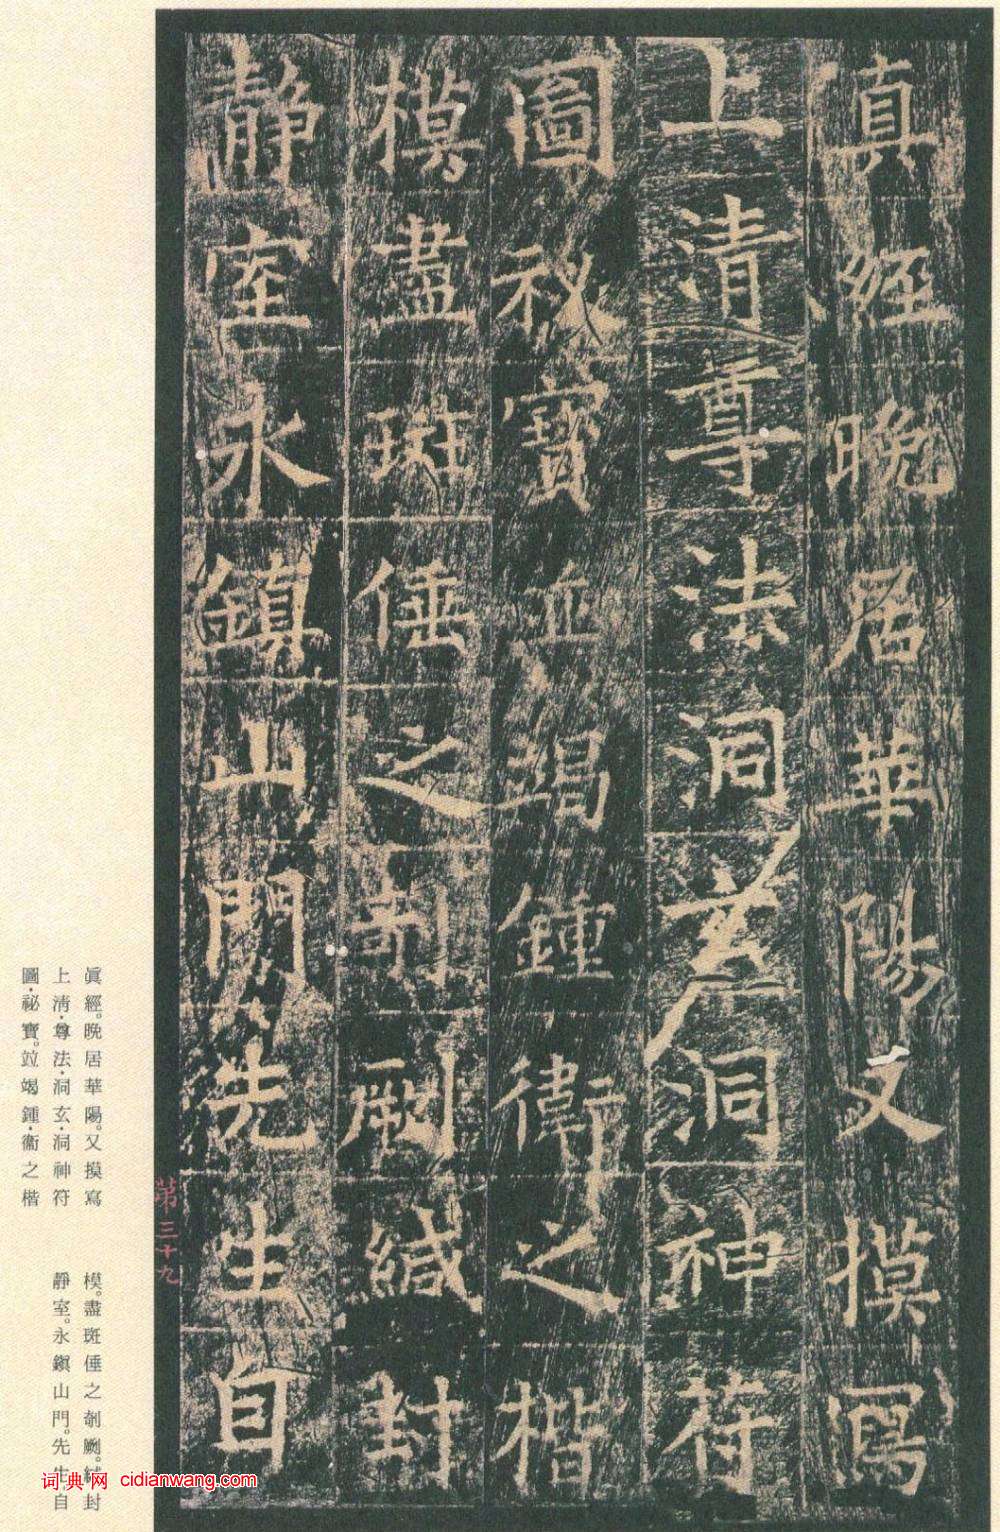 真經晚居華陽又摸寫
上清尊法洞玄洞神符
圖秘寶並竭鍾衛之楷
模盡班倕之剞劂緘封
靜室永鎮山門先生自
第三十九
眞經。晩居華陽。又摸寫
上淸・尊法・洞玄・洞神符
圖・祕寶。竝竭鍾・衞之楷
模。盡斑倕之剞劂。緘封
靜室。永鎭山門。先生自
词典网 cidianwang.com